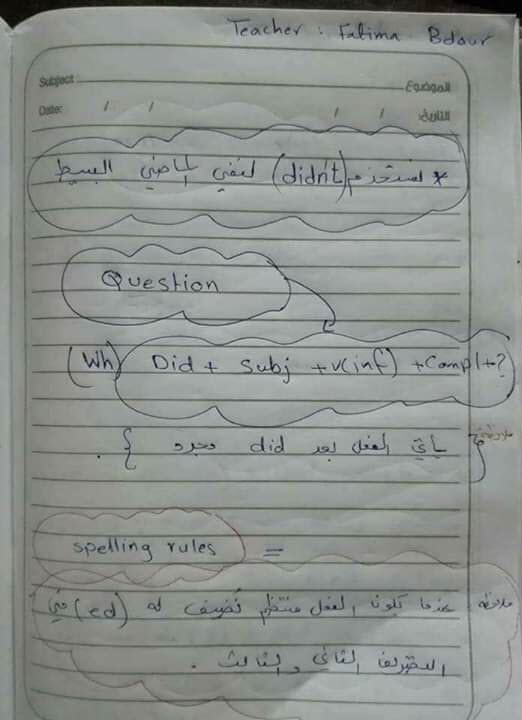 Teacher : Fatima Bdour
Subject الموضوع
Date: / / / / التاريخ:
* نستخدم (didn't) لنفي الماضي البسيط
Question
(Wh) Did + Subj + v(inf) + Compl + ?
ملاحظة { يأتي الفعل بعد did مجرد } .
spelling rules =
ملاحظة عندما يكون الفعل منتظم نضيف له (ed) في
التصريف الثاني والثالث .